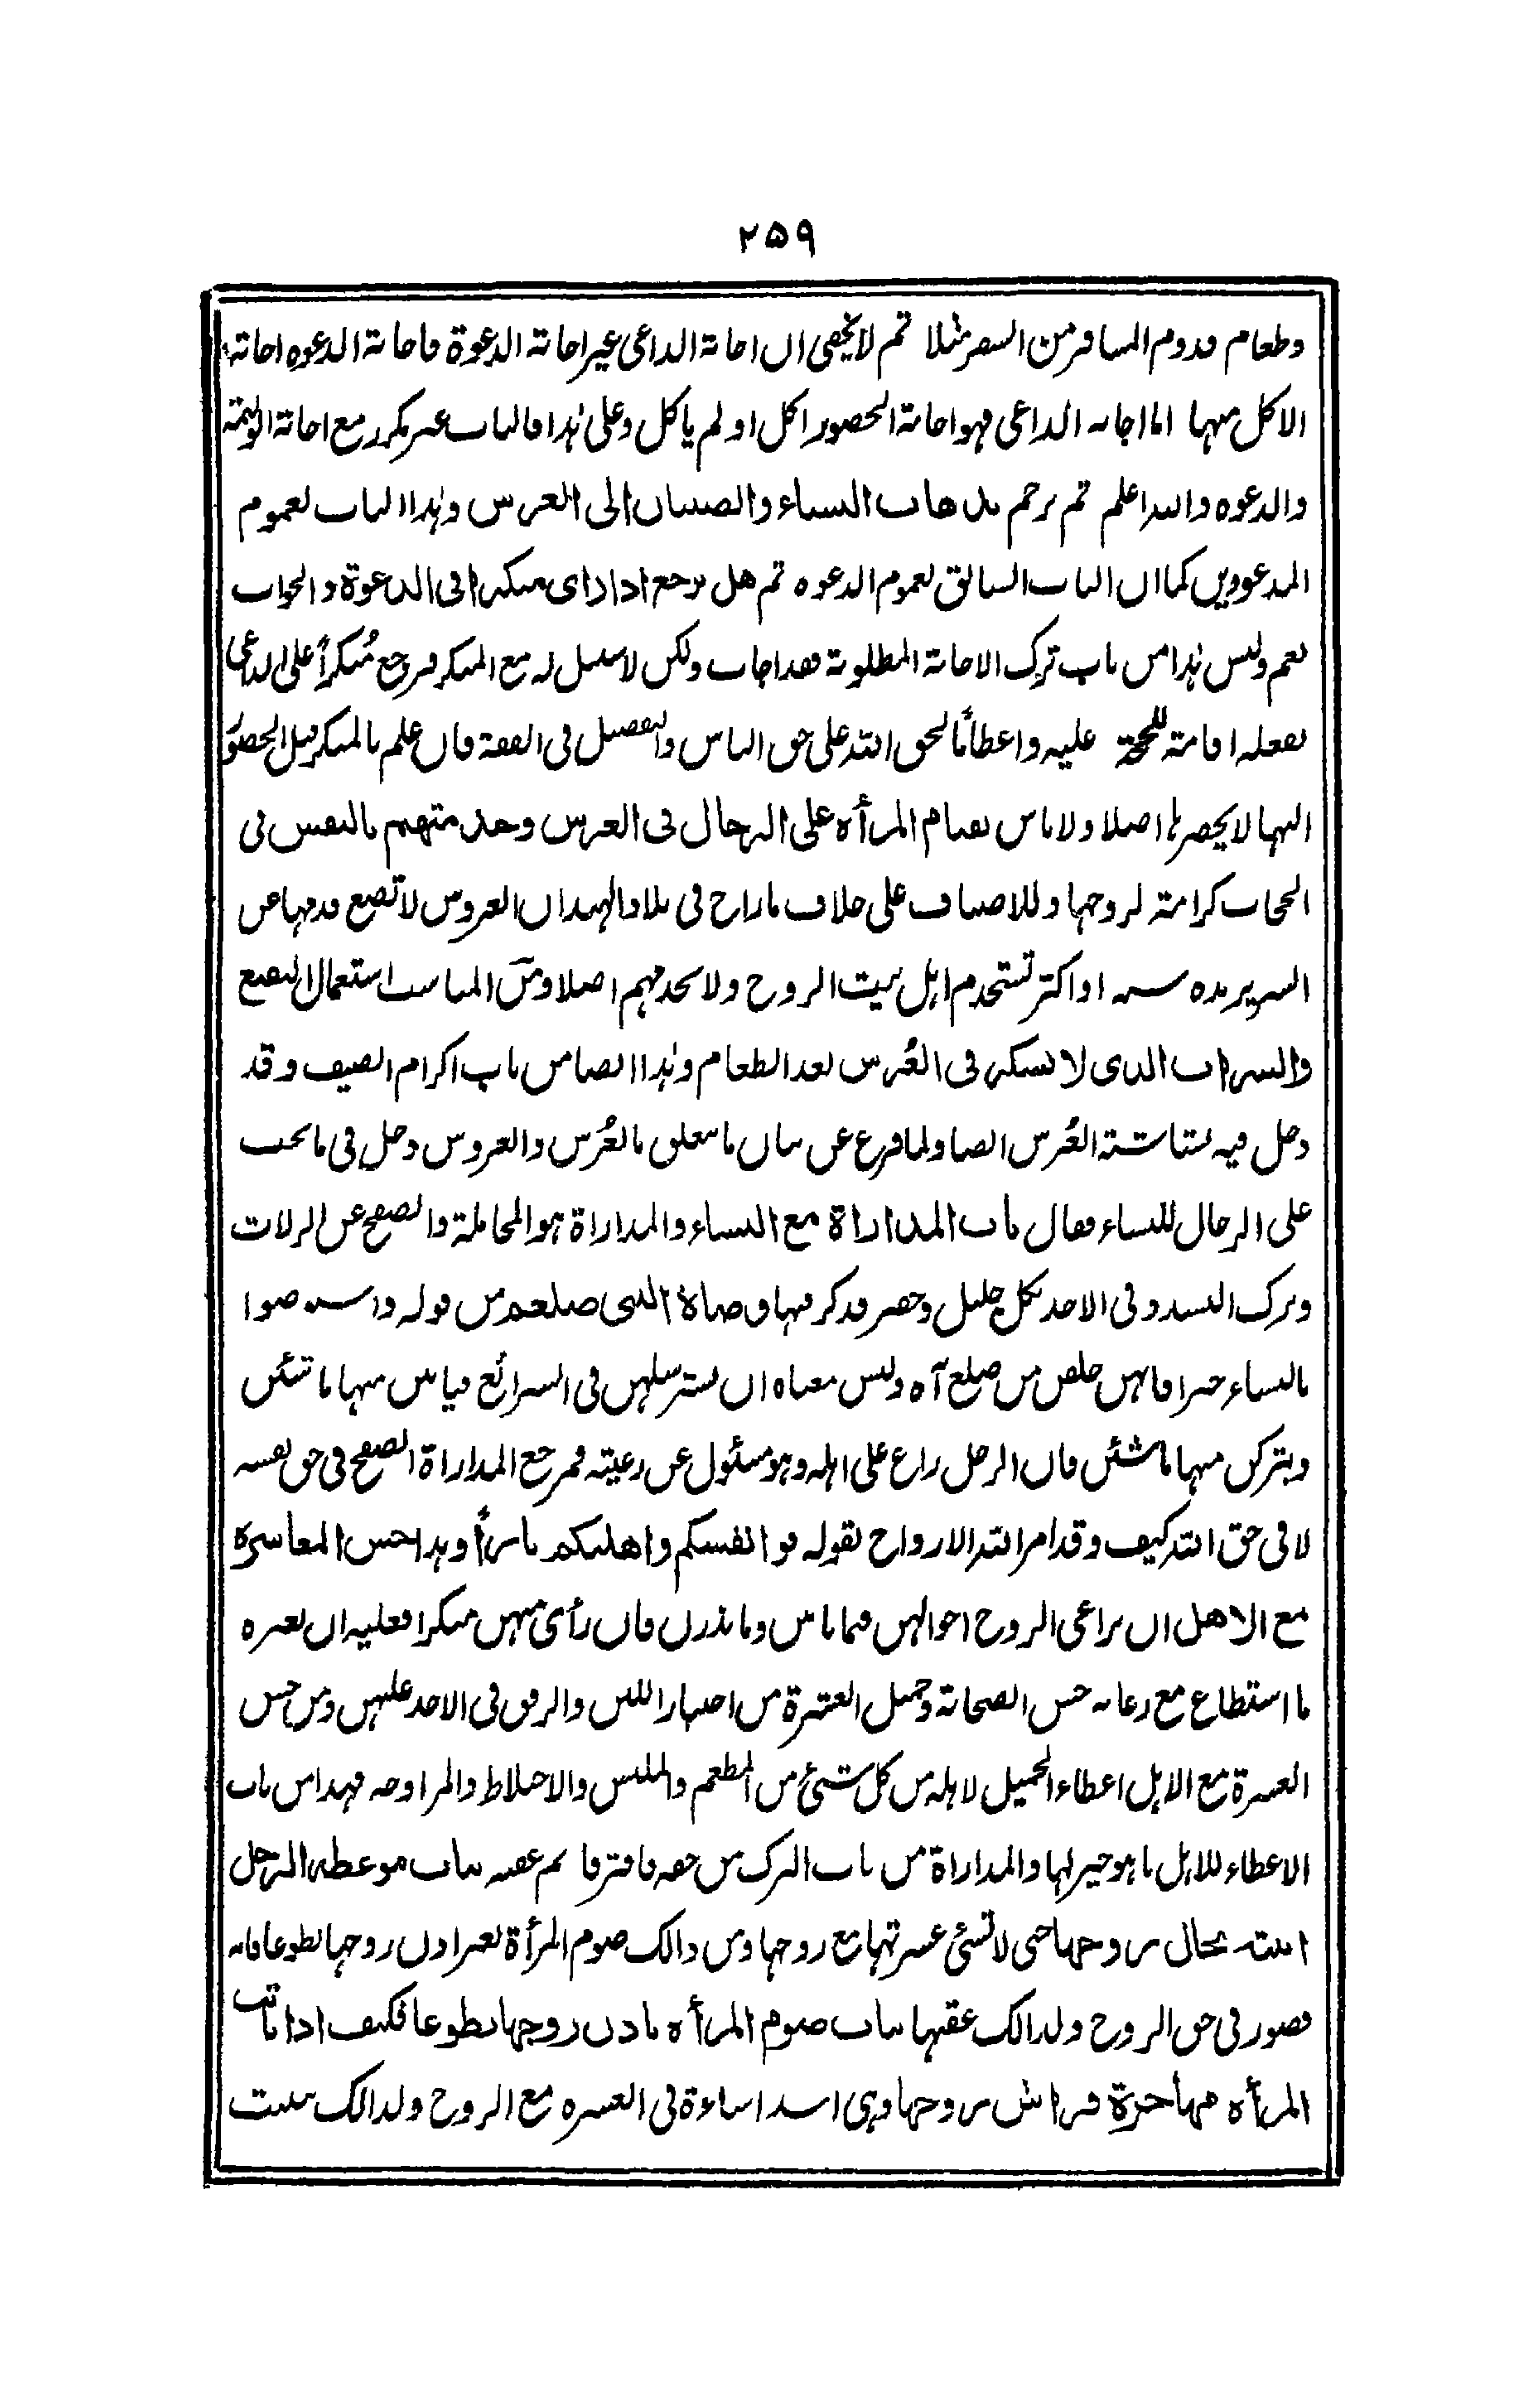 ۲۵۹
وطعام قدوم المسافر من السفر مثلا ثم لا يخفى ان اجابة الداعى غير اجابة الدعوة فاجابة الدعوه اجابة
الاكل منها اما اجابه الداعى فهو اجابة الحضور اكل او لم ياكل وعلى هذا فالباب غير مكرر مع اجابة الوليمة
والدعوه والله اعلم ثم ترجم بذهاب النساء والصبيان الى العرس وهذا الباب لعموم
المدعووين كما ان الباب السابق لعموم الدعوه ثم هل يرجع اذا راى منكرا فى الدعوة والجواب
نعم وليس هذا من باب ترك الاجابة المطلوبة فقد اجاب ولكن لا سبيل له مع المنكر فرجع مُنكراً على الداعى
بفعله اقامة للحجة عليه واعطاءً لحق الله على حق الناس والتفصيل فى الفقه فان علم بالمنكر قبل الحضور
اليها لا يحضرها اصلا ولا باس بقيام المرأه على الرجال فى العرس وخدمتهم بالنفس فى
الحجاب كرامة لزوجها وللاضياف على خلاف ما راج فى بلاد الهند ان العروس لا تضع قدمها من
السرير مده سنه او اكثر تستخدم اهل بيت الزوج ولا تخدمهم اصلا ومن المناسب استعمال النقيع
والشراب الذى لا يسكر فى العُرس بعد الطعام وهذا ايضا من باب اكرام الضيف وقد
دخل فيه بشاشة العُرس ايضا ولما فرغ عن بيان ما يتعلق بالعُرس والعروس دخل فى ما يجب
على الرجال للنساء فقال باب المداراة مع النساء والمداراة هو المجاملة والصفح عن الزلات
وترك التشدد فى الاخذ بكل جليل وحقير قد كر فيها وصاة النبى صلعم من قوله واستوصوا
بالنساء خيرا فانهن خلقن من ضلع آه وليس معناه ان يسترسلهن فى الشرائع فياتين منها ما شئن
ويتركن منها ما شئن فان الرجل راع على اهله وهو مسئول عن رعيته فمرجع المداراة الصفح فى حق نفسه
لا فى حق الله كيف وقد امر الله الازواج بقوله قوا انفسكم واهليكم ناراً وهذا حسن المعاشرة
مع الاهل ان يراعى الزوج احوالهن فيما ياتين وما يذرن فان رأى منهن منكرا فعليه ان يغيره
ما استطاع مع رعايه حسن الصحابة وجميل العشرة من اختيار اللين والرفق فى الاخذ عليهن ومن حسن
العشرة مع الاهل اعطاء الجميل لاهله من كل شئ من المطعم والملبس والاختلاط والمراوحه فهذا من باب
الاعطاء للاهل ما هو خير لها والمداراة من باب الترك من حقه فافترقا ثم عقبه بباب موعظة الرجل
ابنته بحال زوجها حتى لا تسئ عشرتها مع زوجها ومن ذالك صوم المرأة بغير اذن زوجها تطوعا فانه
قصور فى حق الزوج ولذالك عقبها بباب صوم المرأه باذن زوجها تطوعا فكيف اذا باتت
المرأه مهاجرة فراش زوجها وهى اشد اساءة فى العشره مع الزوج ولذالك بيت